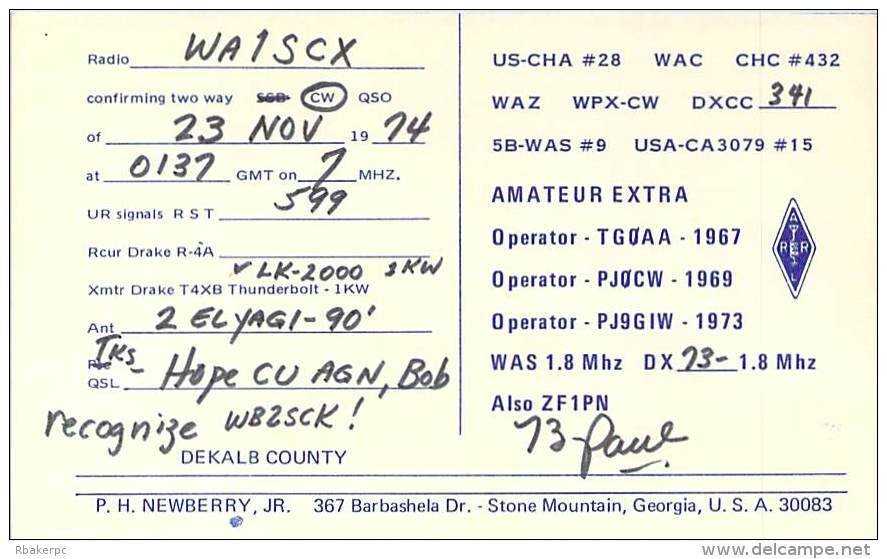 Radio WA1SCX
confirming two way SSB CW QSO
of 23 NOV 19 74
at 0137 GMT on 7 MHZ.
UR signals R S T 599
Rcur Drake R-4A
✓ LK-2000 2KW
Xmtr Drake T4XB Thunderbolt - 1KW
Ant 2 EL YAGI - 90'
TKS
QSL - Hope CU AGN, Bob
recognize WB2SCK!
DEKALB COUNTY
US-CHA #28 WAC CHC #432
WAZ WPX-CW DXCC 341
5B-WAS #9 USA-CA3079 #15
AMATEUR EXTRA
Operator - TGØAA - 1967
Operator - PJØCW - 1969
Operator - PJ9GIW - 1973
WAS 1.8 Mhz DX 73- 1.8 Mhz
Also ZF1PN
73- Paul
ARRL
P. H. NEWBERRY, JR. 367 Barbashela Dr. - Stone Mountain, Georgia, U. S. A. 30083
Rbakerpc
delcampe.net